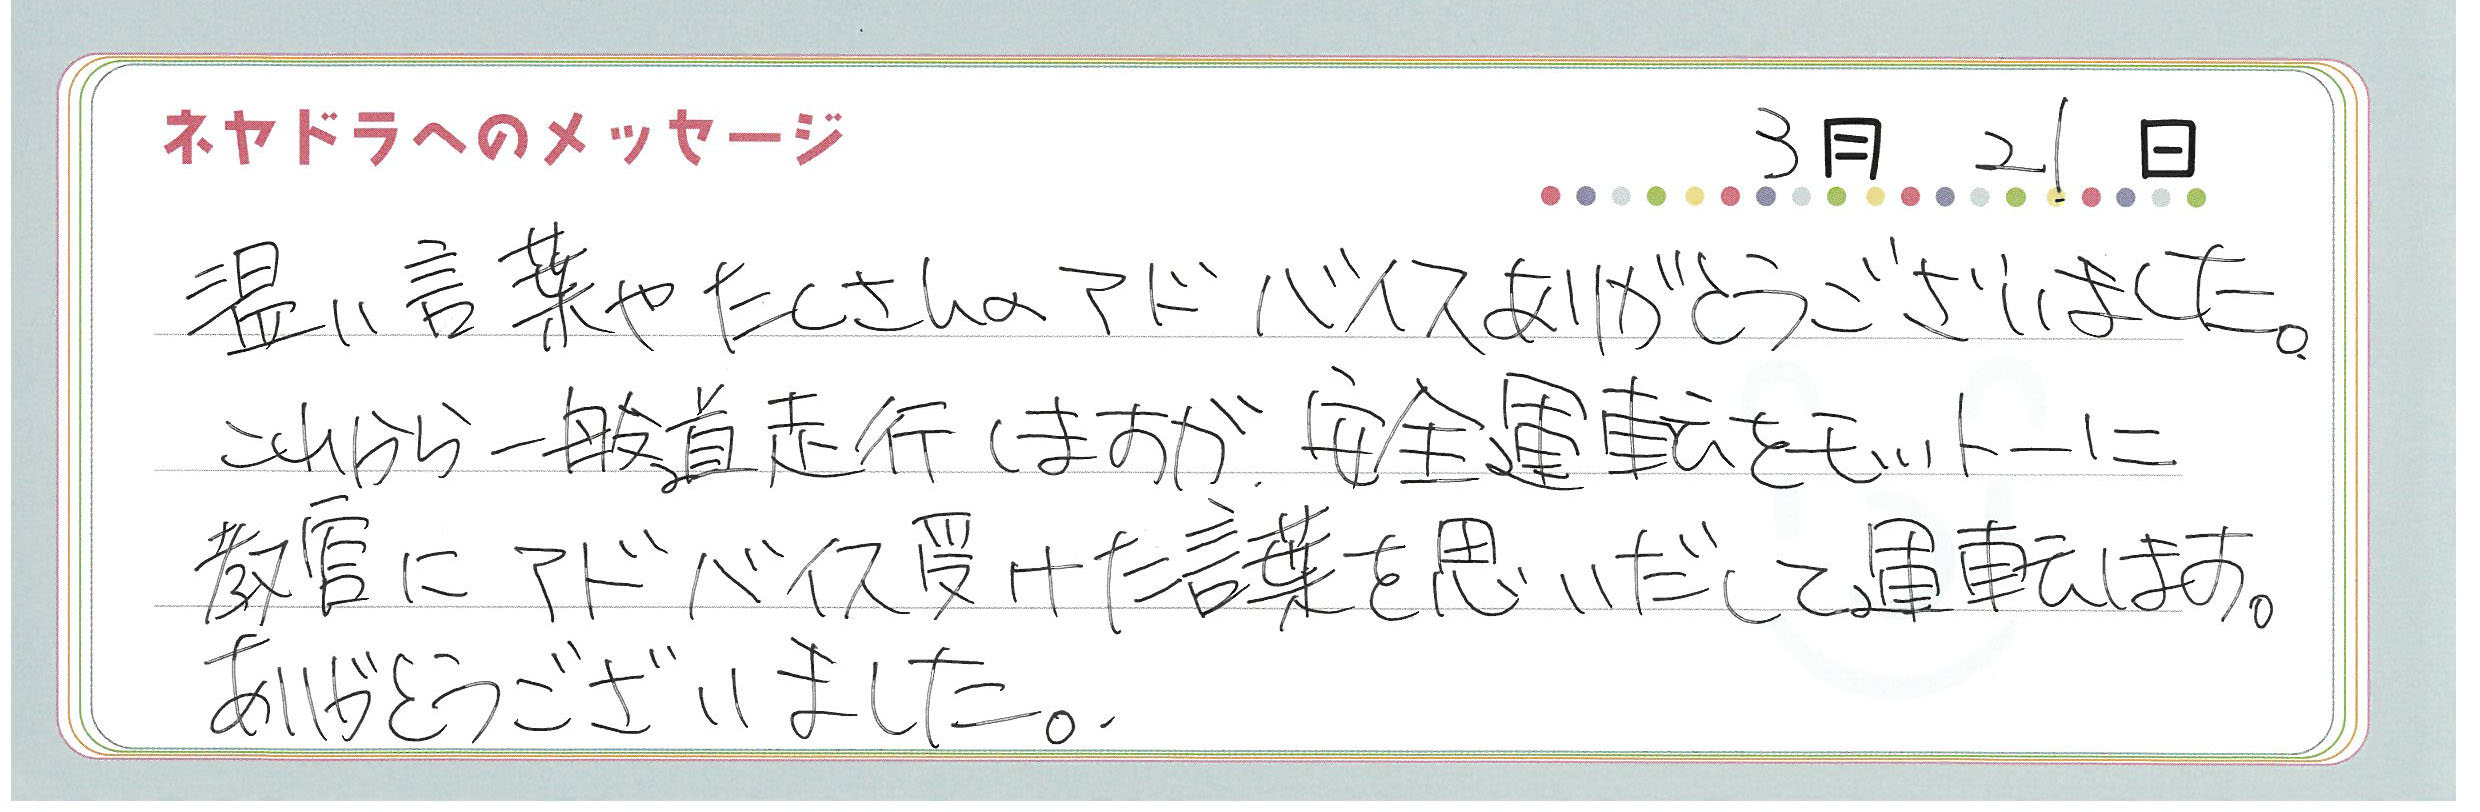 ネヤドラへのメッセージ
3月 21日
温い言葉やたくさんのアドバイスありがとうございました。
これから一般道走行しますが、安全運転をモットーに
教官にアドバイス受けた言葉を思いだして運転します。
ありがとうございました。